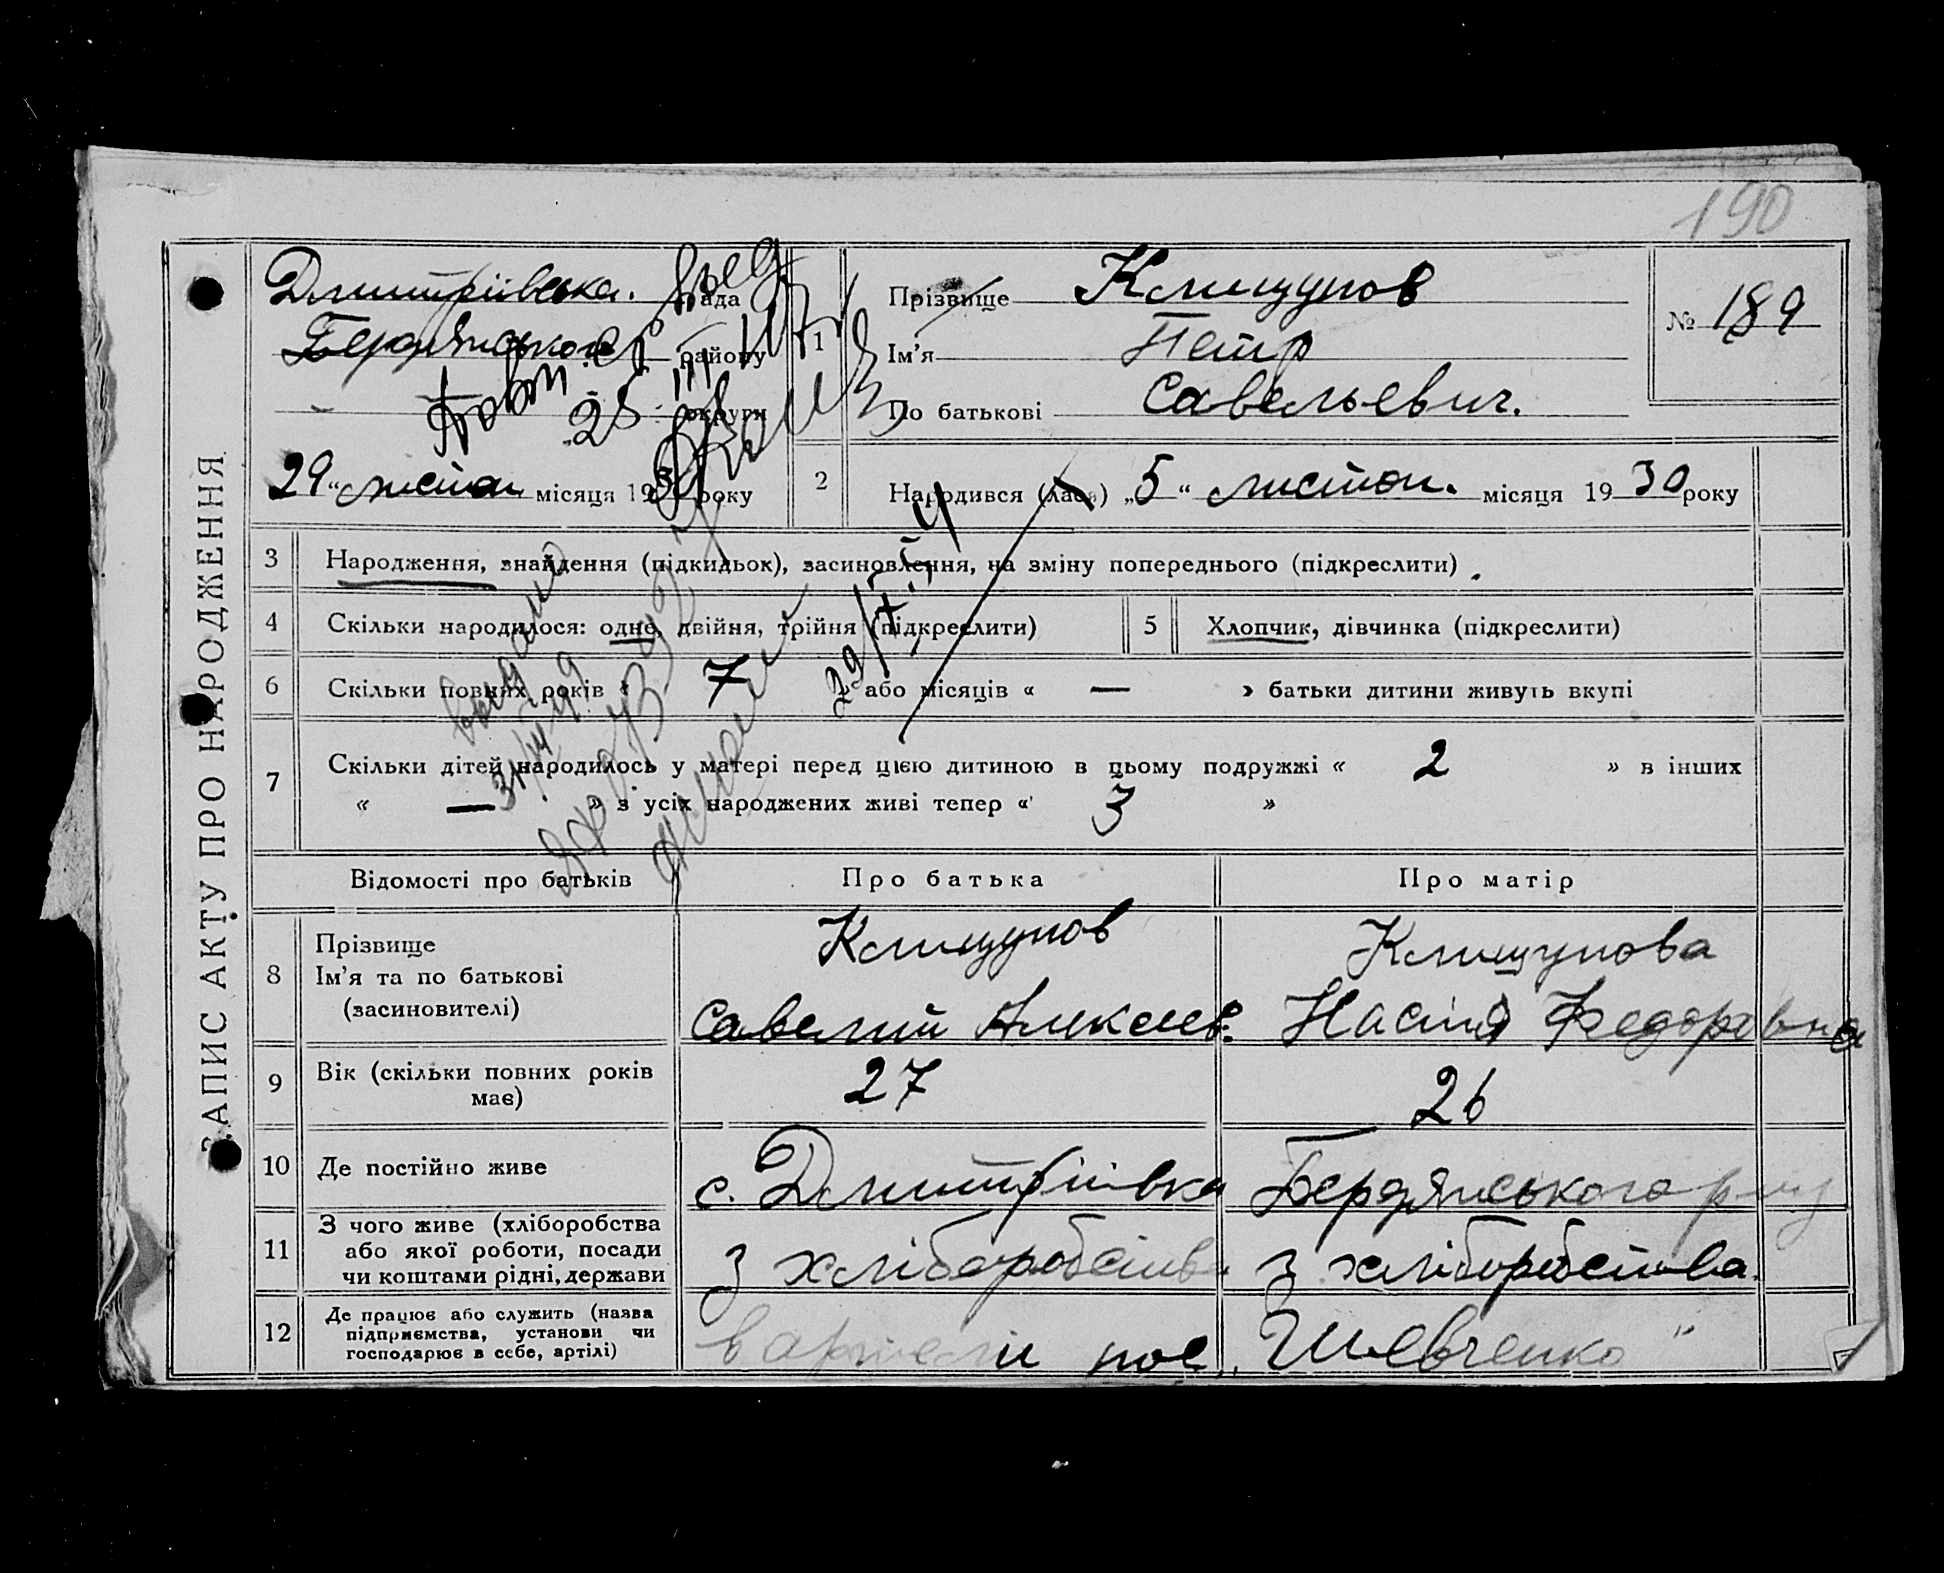 190
ЗАПИС АКТУ ПРО НАРОДЖЕННЯ
Дмитріівська. рада
Бердянського району
округи
"29" листоп місяця 1930 року
1
Прізвище Клищунов
Ім'я Петр
По батькові Савельевич.
№ 189
2
Народився (лась) „5“ листоп. місяця 1930 року
3 Народження, знайдення (підкидьок), засиновлення, на зміну попереднього (підкреслити).
4 Скільки народилося: одне, двійня, трійня (підкреслити)
5 Хлопчик, дівчинка (підкреслити)
6 Скільки повних років « 7 » або місяців « — » батьки дитини живуть вкупі
7 Скільки дітей народилось у матері перед цією дитиною в цьому подружжі « 2 » в інших
« — » з усіх народжених живі тепер « 3 »
Відомості про батьків Про батька Про матір
8 Прізвище Клищунов Клищунова
Ім'я та по батькові
(засиновителі) Савелий Алексеев. Настя Федоровна
9 Вік (скільки повних років має) 27 26
10 Де постійно живе с. Дмитріівка Бердянського р-ну
11 З чого живе (хліборобства
або якої роботи, посади
чи коштами рідні, держави з хліборобства з хліборобства.
12 Де працює або служить (назва
підприємства, установи чи
господарює в себе, артілі) в артели пос. „Шевченко"